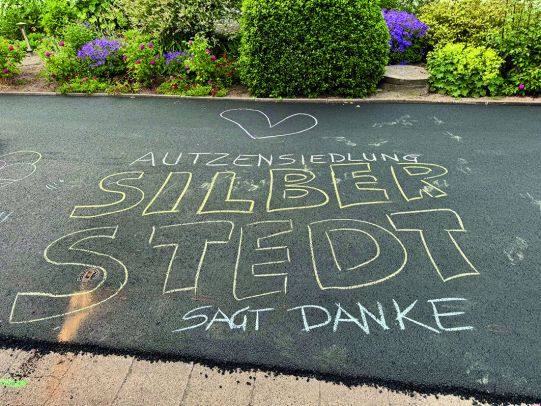 AUTZENSIEDLUNG
SILBER
STEDT
SAGT DANKE